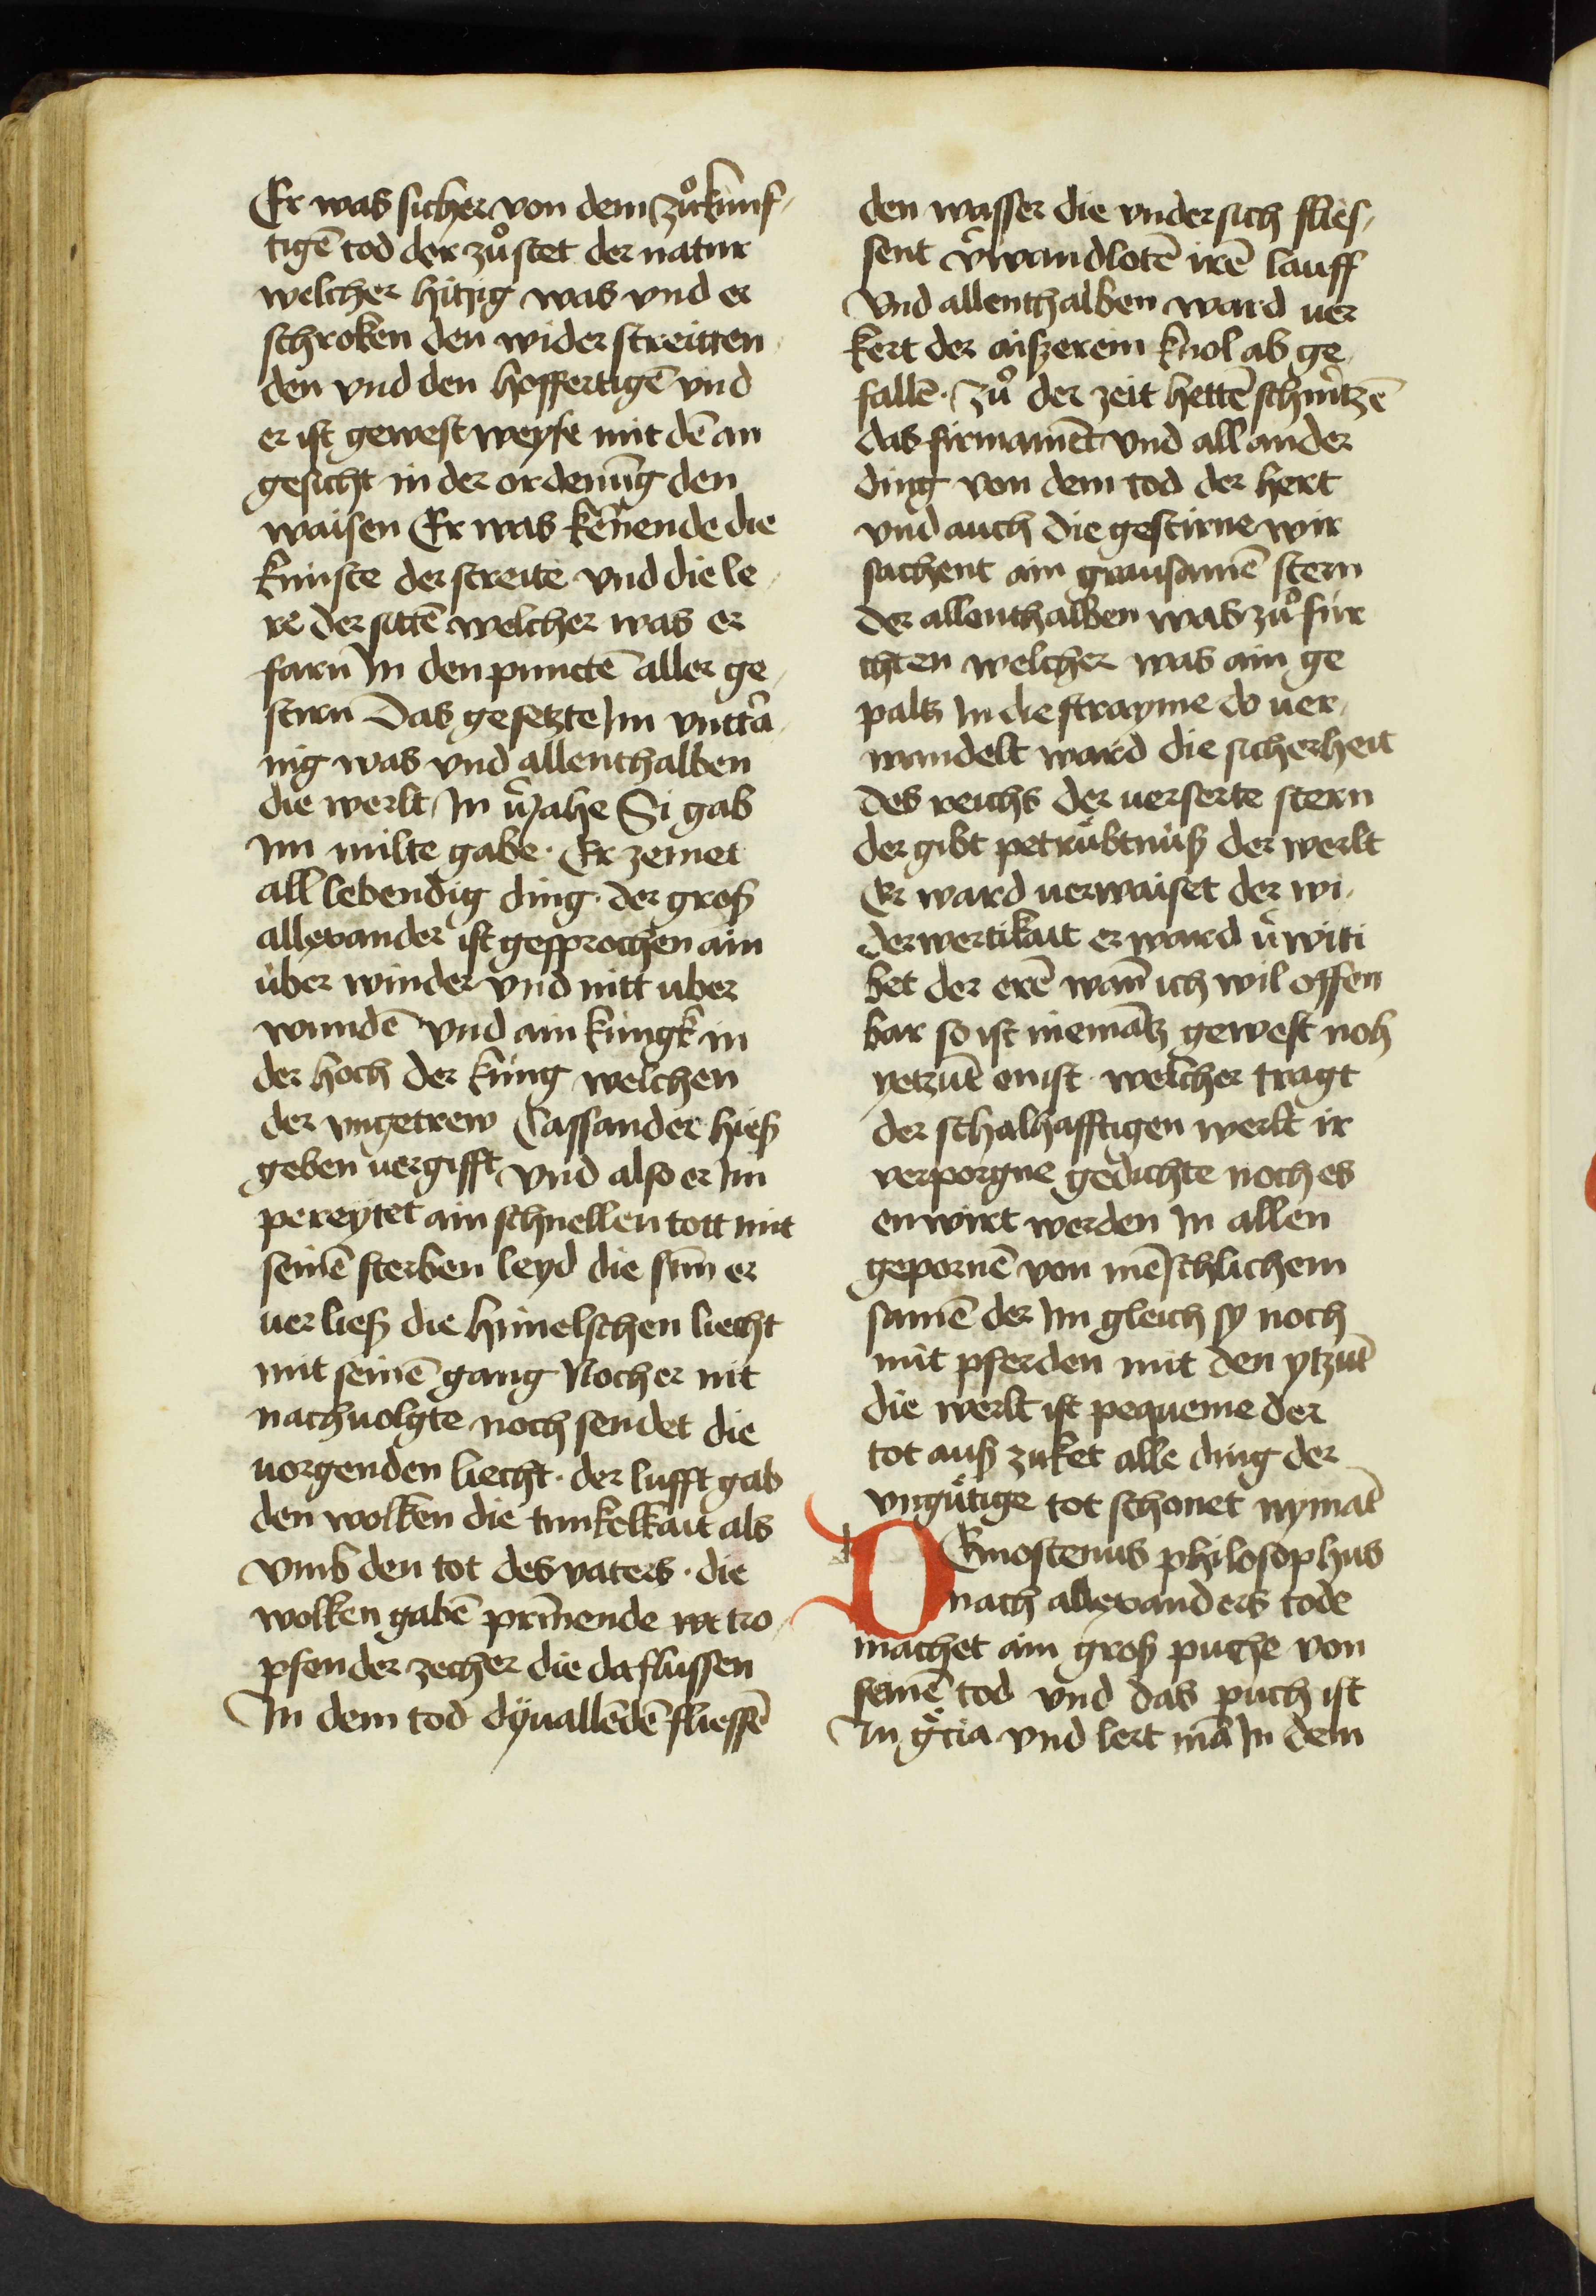 Er was sicher von dem zuͦkunf-
tigē tod der zuͦstet der natur
welcher hitzig was vnd er
schroken den wider streitten
den vnd den hoffertigē vnd
er ist gewest weyse mit dē an
gesicht in der ordenūg den
waisen Er was kēnende die
künste der streite vnd die le-
re der sitē welcher was er
farn In den punctē aller ge-
stirn Das gesetzte Im vnttā
nig was vnd allenthalben
die werlt In Si gab
Im milte gabe · Er zemet
all lebendig ding · der groß
allexander ist gesprochen ain
über winder vnd nitt uber
wundē vnd ain küngk in
der hoch der küng welchen
der vngetrew Cassander hieß
geben uergifft vnd also er Im
pereytet ain schnellen tott mit
seinē sterben leyd die sūn er
uerließ die himelschen liecht
mit seinē gang Noch er nit
nachuolgte noch sendet die
uorgenden liecht · der lufft gab
den wolken die tunkelkait als
vmb den tot des vaters · die
wolken gabē prīnende tro-
pfen der zecher die da flussen
In dem tod dÿ uallēdē fliessē
den wasser die vndersich flies-
sent v̄wandlotē irē lauff
Vnd allenthalben ward uer
kert der aißerein knol ab ge
fallē · zuͦ der zeit hettē schmtzē
das firmament vnd all ander
ding von dem tod der hert
vnd auch die gestirne wir
sachent ain grausamē stern
der allenthalben was zuͦ für
chten welcher was ain ge
paltz In die strayme do uer-
wandelt ward die sicherheit
des reichs der uerserte stern
der gibt petrübtnüß der werlt
Er ward uerwaiset der wi-
derwertikait er ward v̄witi
bet der erē wan̄ ich wil offen
bar so ist niemātz gewest noh
yetzūt enist · welcher tragt
der schalhafftigen werlt ir
verporgne gedichte noch es
enwirt werden In allen
gepornē von mēschlichem
samē der Im gleich sy noch
mit pferden mit den ytzūt
die werlt ist pequeme der
tot auß zuket alle ding der
vngütige tot schonet nymāt
DEmostenus philosophus
nach allexanders tode
machet ain groß puche von
seinē tod vnd das puch ist
In g̊cia vnd lert mā In dem